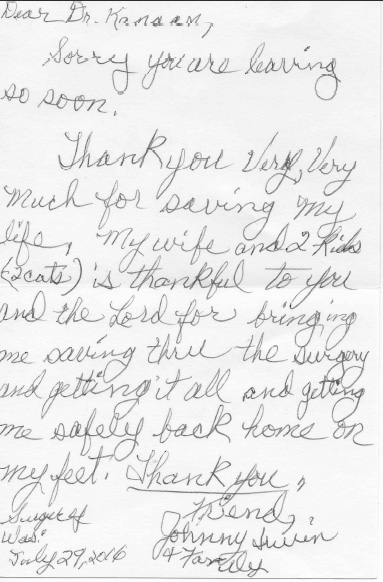 Dear Dr. Kanaan,
Sorry you are leaving
so soon.
Thank you Very, Very
Much for saving my
life, My wife and 2 Kids
(2 cats) is thankful to you
and the Lord for bringing
me saving thru the surgery
and getting it all and getting
me safely back home on
my feet. Thank you,
Friend,
Johnny
& Family
Surgery
Was:
July 29, 2016